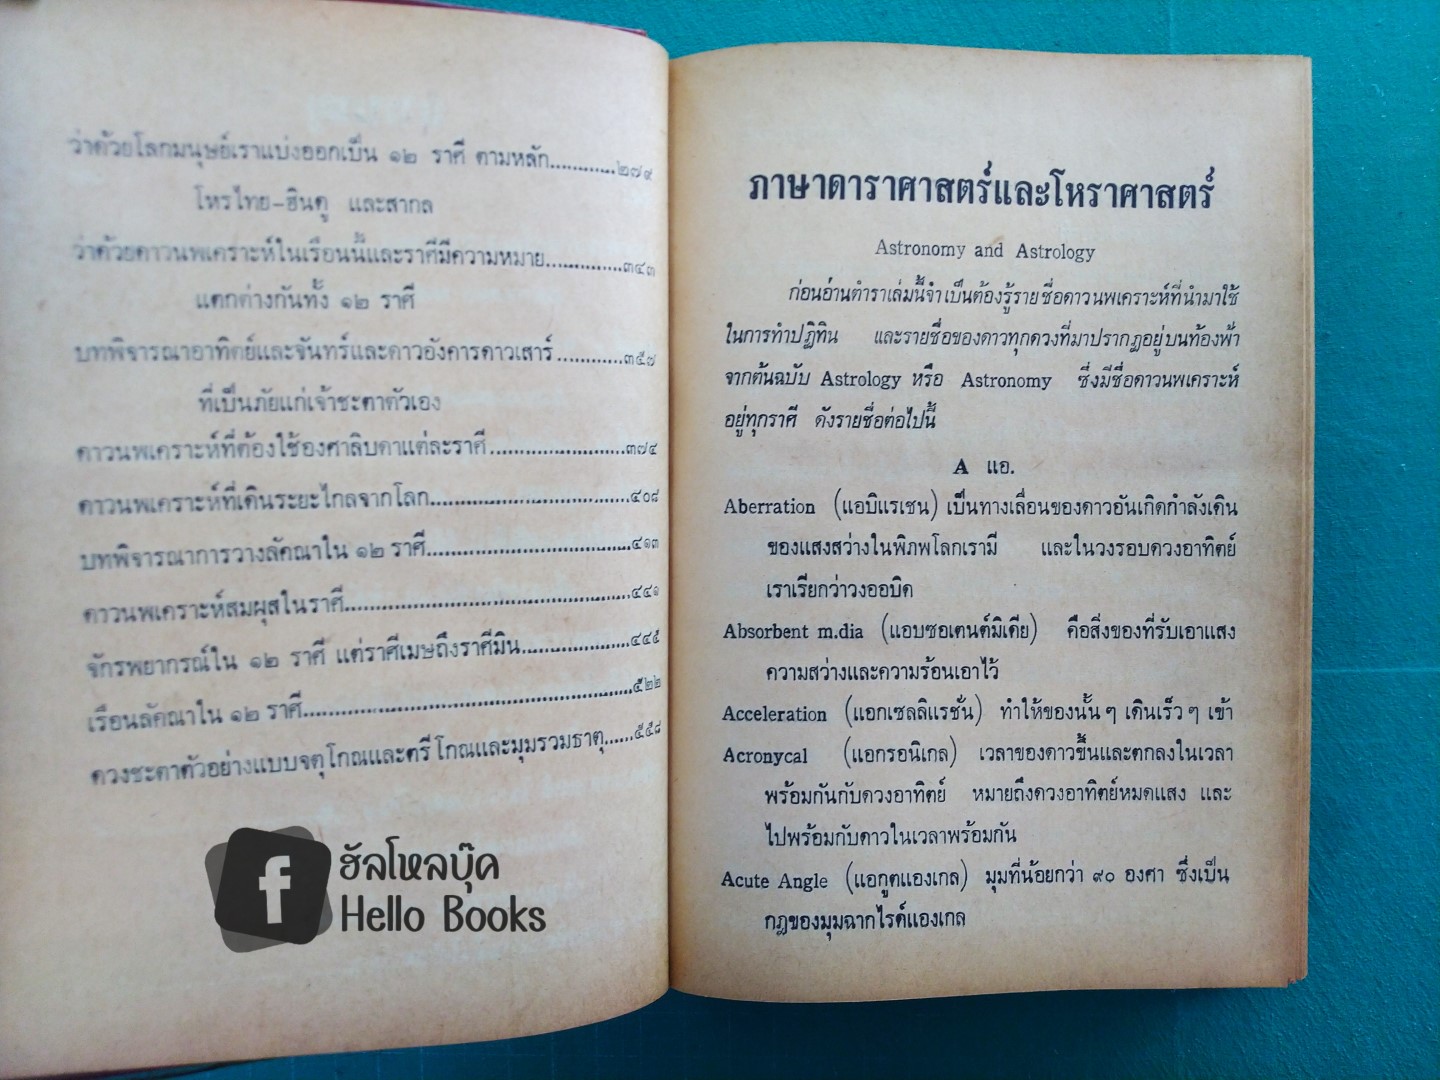 ว่าด้วยโลกมนุษย์เราแบ่งออกเป็น ๑๒ ราศี ตามหลัก............๒๗๙
โหรไทย-ฮินดู และสากล
ว่าด้วยดาวนพเคราะห์ในเรือนนี้และราศีมีความหมาย..............๓๔๓
แตกต่างกันทั้ง ๑๒ ราศี
บทพิจารณาอาทิตย์และจันทร์และดาวอังคารดาวเสาร์............๓๕๗
ที่เป็นภัยแก่เจ้าชะตาตัวเอง
ดาวนพเคราะห์ที่ต้องใช้องศาลิบดาแต่ละราศี........................๓๗๔
ดาวนพเคราะห์ที่เดินระยะไกลจากโลก...................................๔๐๘
บทพิจารณาการวางลัคณาใน ๑๒ ราศี...................................๔๑๓
ดาวนพเคราะห์สมผุสในราศี..................................................๔๔๑
จักรพยากรณ์ใน ๑๒ ราศี แต่ราศีเมษถึงราศีมิน....................๔๔๕
เรือนลัคณาใน ๑๒ ราศี.........................................................๕๒๒
ดวงชะตาตัวอย่างแบบจตุโกณและตรีโกณและมุมรวมธาตุ......๕๕๘
f
ฮัลโหลบุ๊ค
Hello Books
ภาษาดาราศาสตร์และโหราศาสตร์
Astronomy and Astrology
ก่อนอ่านตำราเล่มนี้จำเป็นต้องรู้รายชื่อดาวนพเคราะห์ที่นำมาใช้
ในการทำปฏิทิน และรายชื่อของดาวทุกดวงที่มาปรากฏอยู่บนท้องฟ้า
จากต้นฉบับ Astrology หรือ Astronomy ซึ่งมีชื่อดาวนพเคราะห์
อยู่ทุกราศี ดังรายชื่อต่อไปนี้
A แอ.
Aberration (แอบิแรเชน) เป็นทางเลื่อนของดาวอันเกิดกำลังเดิน
ของแสงสว่างในพิภพโลกเรามี และในวงรอบดวงอาทิตย์
เราเรียกว่าวงออบิด
Absorbent m.dia (แอบซอเตนต์มิเดีย) คือสิ่งของที่รับเอาแสง
ความสว่างและความร้อนเอาไว้
Acceleration (แอกเซลลิแรชั่น) ทำให้ของนั้น ๆ เดินเร็ว ๆ เข้า
Acronycal (แอกรอนิเกล) เวลาของดาวขึ้นและตกลงในเวลา
พร้อมกันกับดวงอาทิตย์ หมายถึงดวงอาทิตย์หมดแสง และ
ไปพร้อมกับดาวในเวลาพร้อมกัน
Acute Angle (แอกูตแองเกล) มุมที่น้อยกว่า ๙๐ องศา ซึ่งเป็น
กฎของมุมฉากไรค์แองเกล